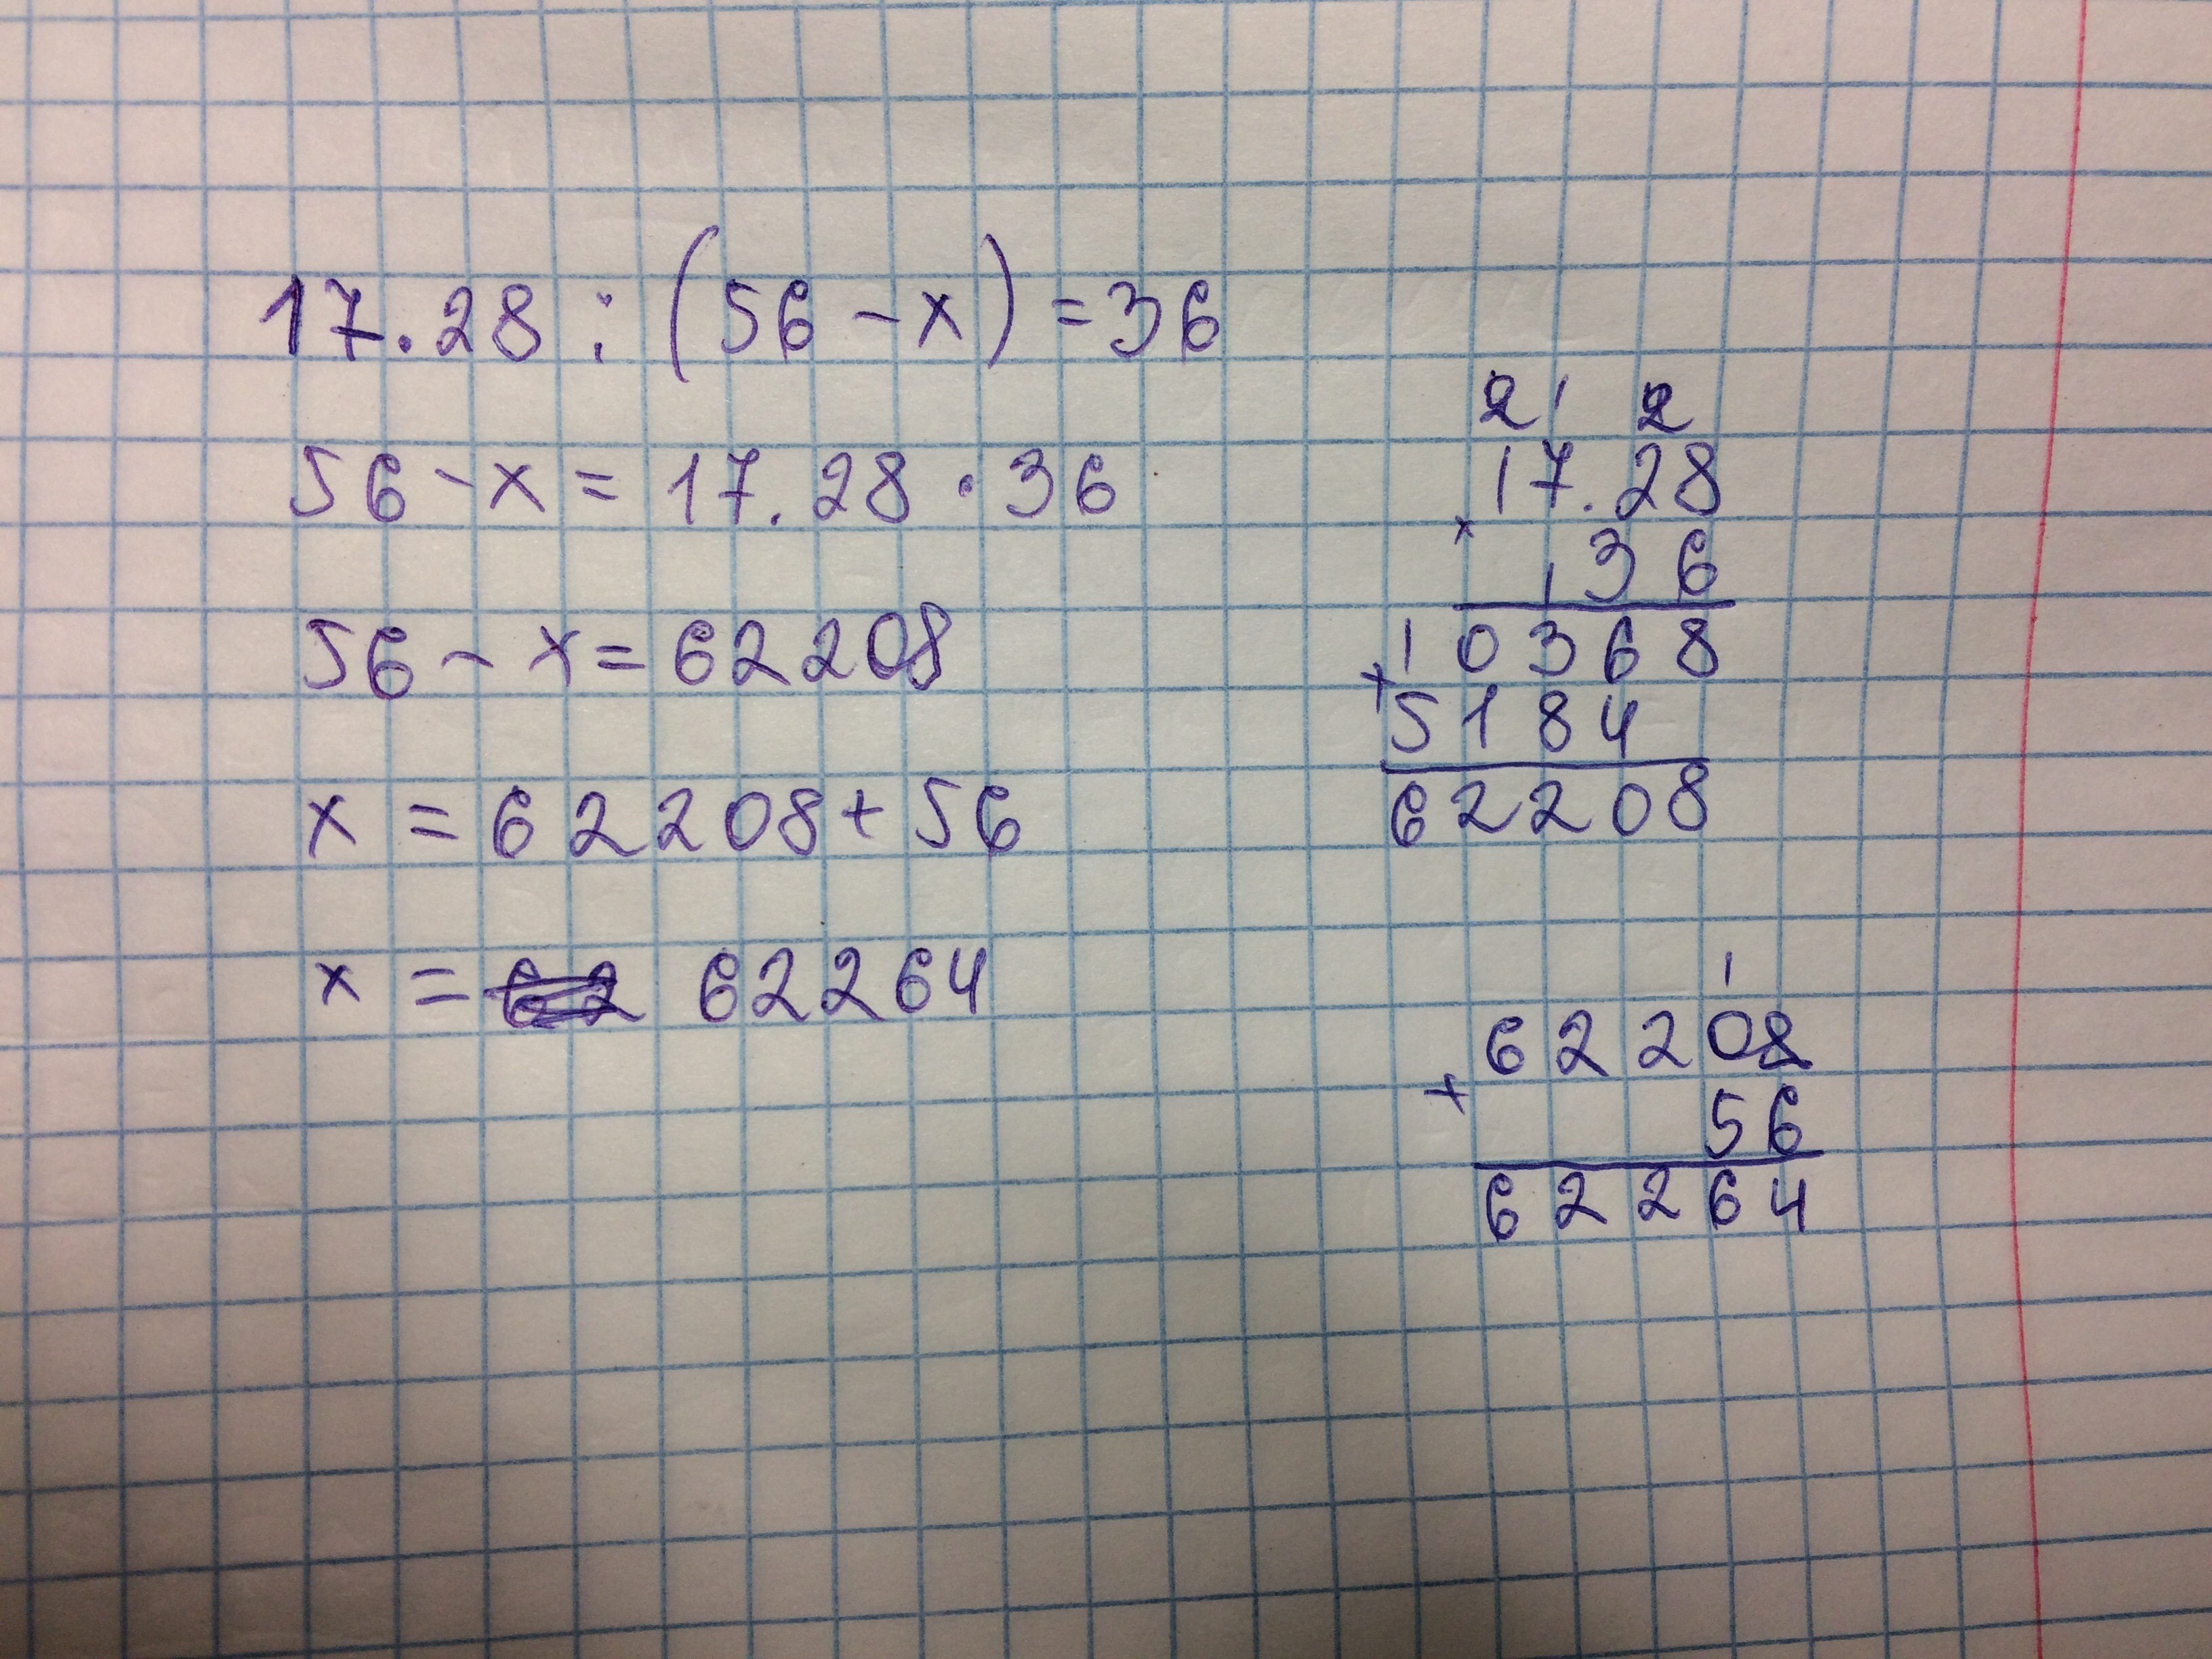 17.28 : (56 - x) = 36
56 - x = 17.28 · 36
56 - x = 62208
x = 62208 + 56
x = 62264
2 1 2
17.28
×
1 36
10368
+
5184
62208
1
62208
+
56
62264